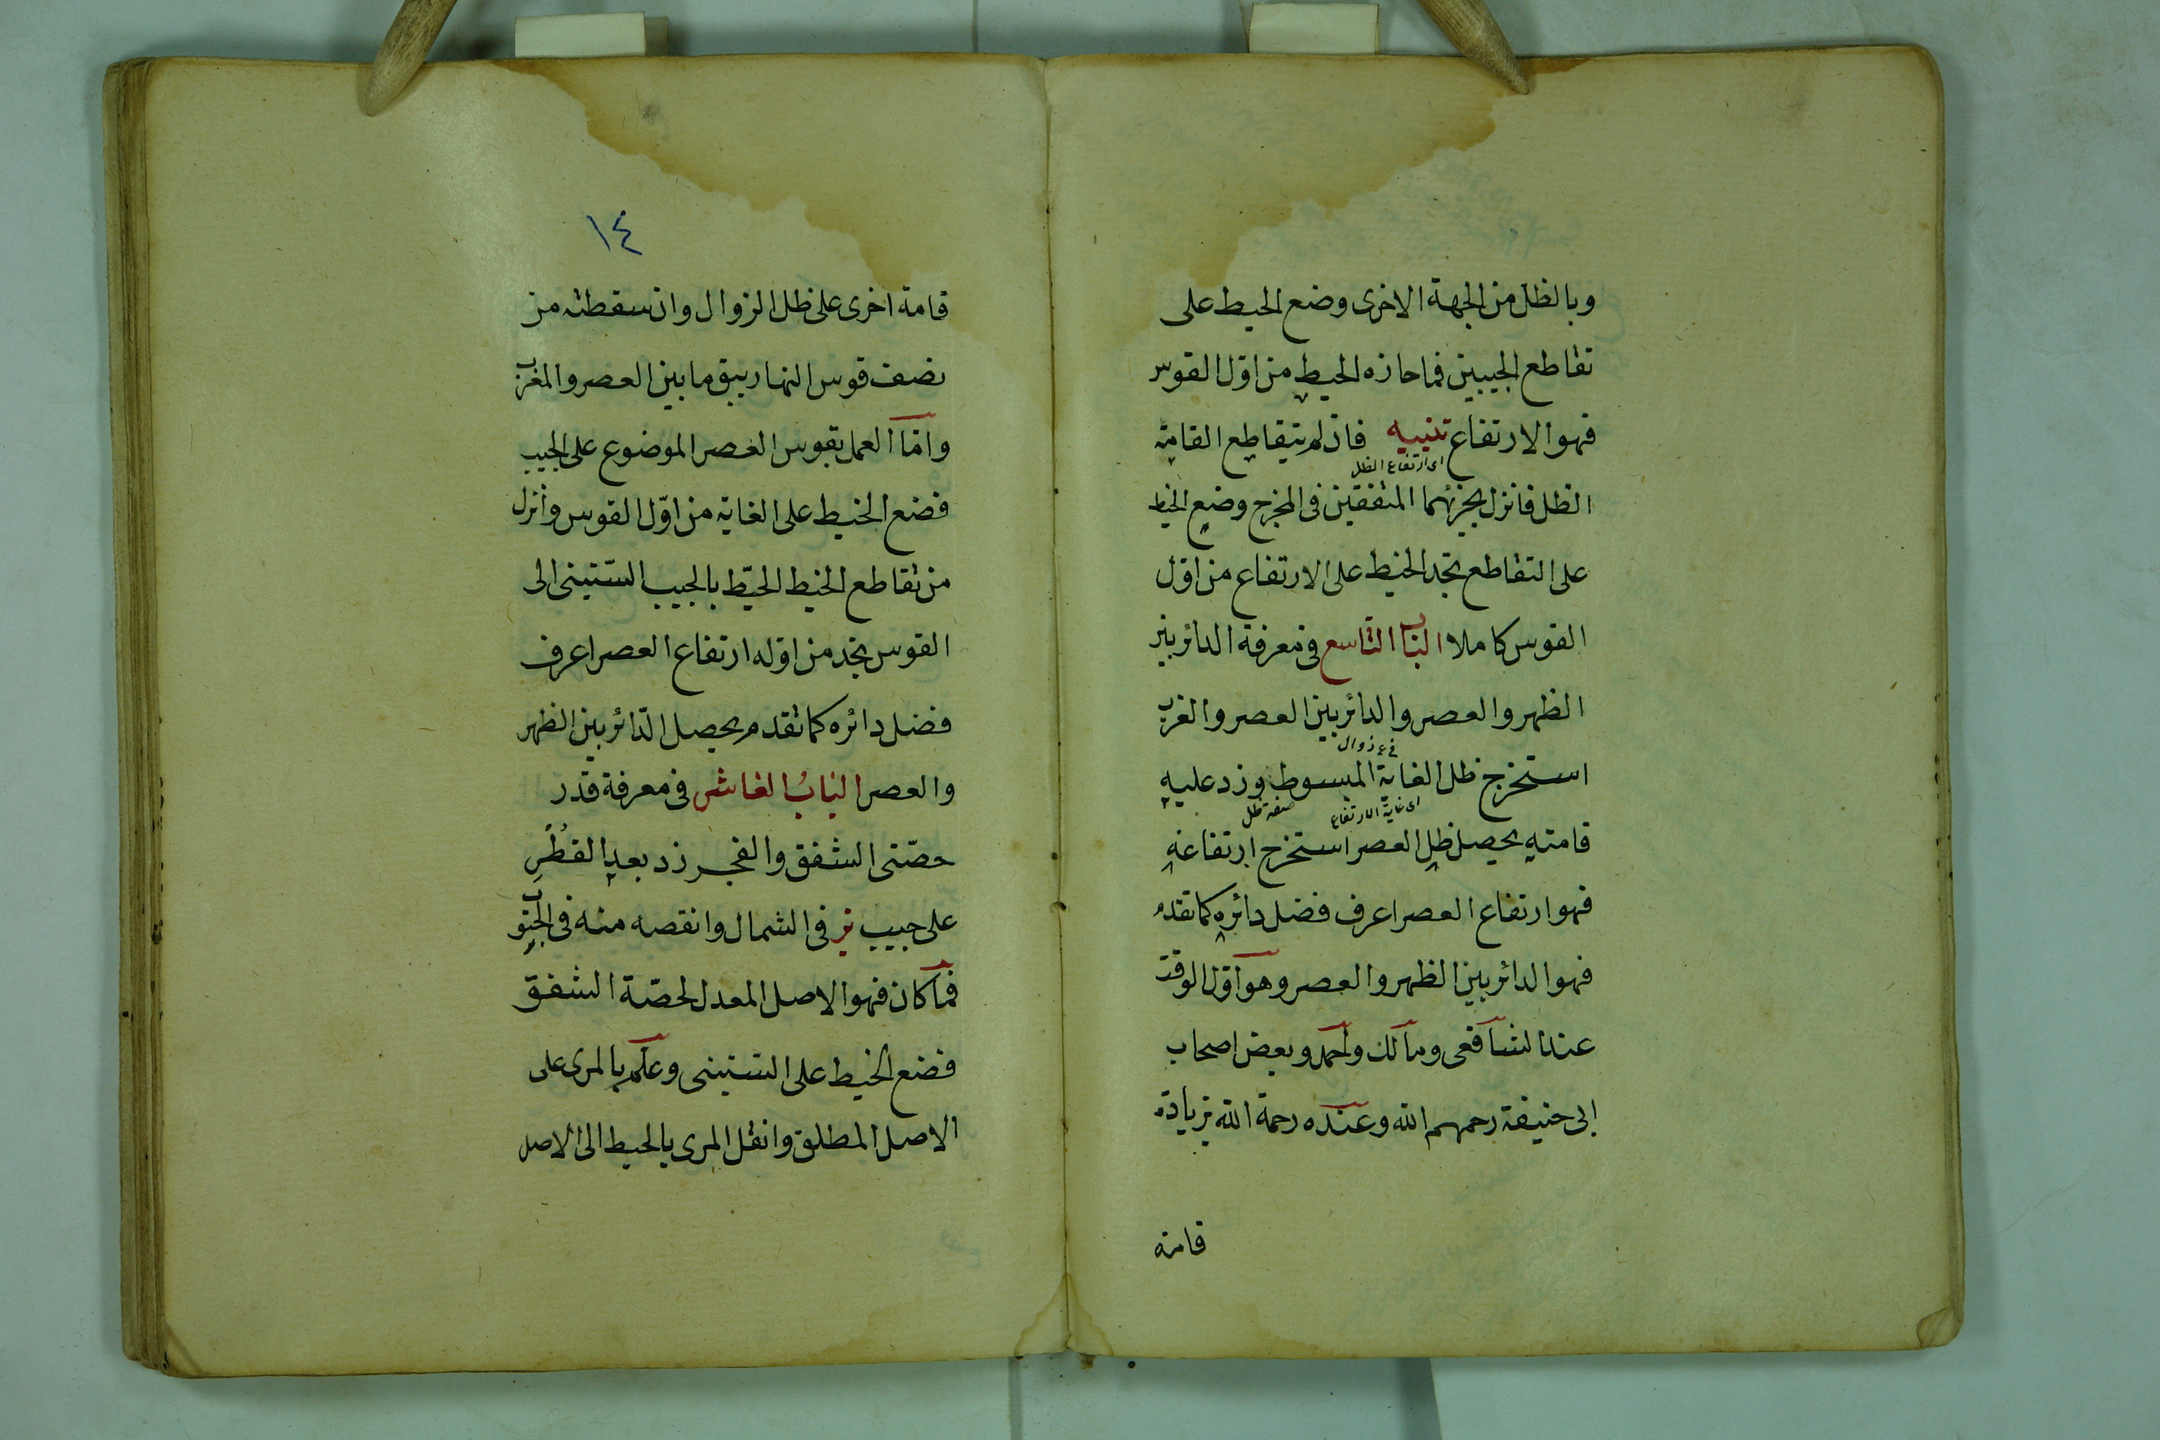 وبالظل من الجهة الاخرى وضع الخيط على
تقاطع الجيبين فما حازه الخيط من اول القوس
فهو الارتفاع تنبيه فان لم يتقاطع القامة
اى ارتفاع الظل
الظل فانزل بجزئهما المتفقين فى المخرج وضع الخيط
على التقاطع تجد الخيط على الارتفاع من اول
القوس كاملا الباب التاسع فى معرفة الدائر بين
الظهر والعصر والدائر بين العصر والغرب
استخرج ظل الغاية المبسوط وزد عليه
اى غاية الارتفاع
قامته يحصل ظل العصر استخرج ارتفاعه
فهو ارتفاع العصر اعرف فضل دائره كما تقدم
فهو الدائر بين الظهر والعصر وهو اول الوقت
عند الشافعى ومالك واحمد وبعض اصحاب
ابى حنيفة رحمهم الله وعنده رحمة الله بزيادة
قامته
١٤
قامة اخرى على ظل الزوال وان سقطته من
نصف قوس النهار يبق ما بين العصر والمغرب
واما العمل بقوس العصر الموضوع على الجيب
فضع الخيط على الغاية من اول القوس وأنزل
من تقاطع الخيط الخيّط بالجيب الستينى الى
القوس تجد من اوله ارتفاع العصر اعرف
فضل دائره كما تقدم يحصل الدّائر بين الظهر
والعصر الباب العاشر فى معرفة قدر
حصّتى الشفق والفجر زد بعد القُطْر
على جيب يز فى الشمال وانقصه منه فى الجنوب
فما كان فهو الاصل المعدل لحصّة الشفق
فضع الخيط على الستينى وعلم بالمرى على
الاصل المطلق وانقل المرى بالخيط الى الاصل